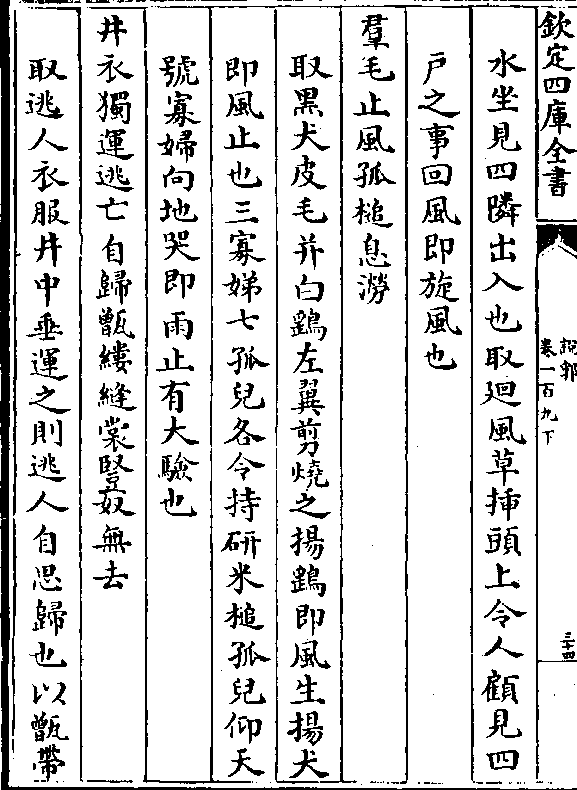 欽定四庫全書
說郛
卷一百九下
三十四
水坐見四隣出入也取廻風草揷頭上令人顧見四
戸之事回風即旋風也
羣毛止風孤槌息澇
取黒犬皮毛并白鷄左翼剪燒之揚鷄即風生揚犬
即風止也三寡婦七孤兒各令持研米槌孤兒仰天
號寡婦向地哭即雨止有大驗也
井衣獨運逃亡自歸甑縷縫裳豎奴無去
取逃人衣服井中垂運之則逃人自思歸也以甑帶